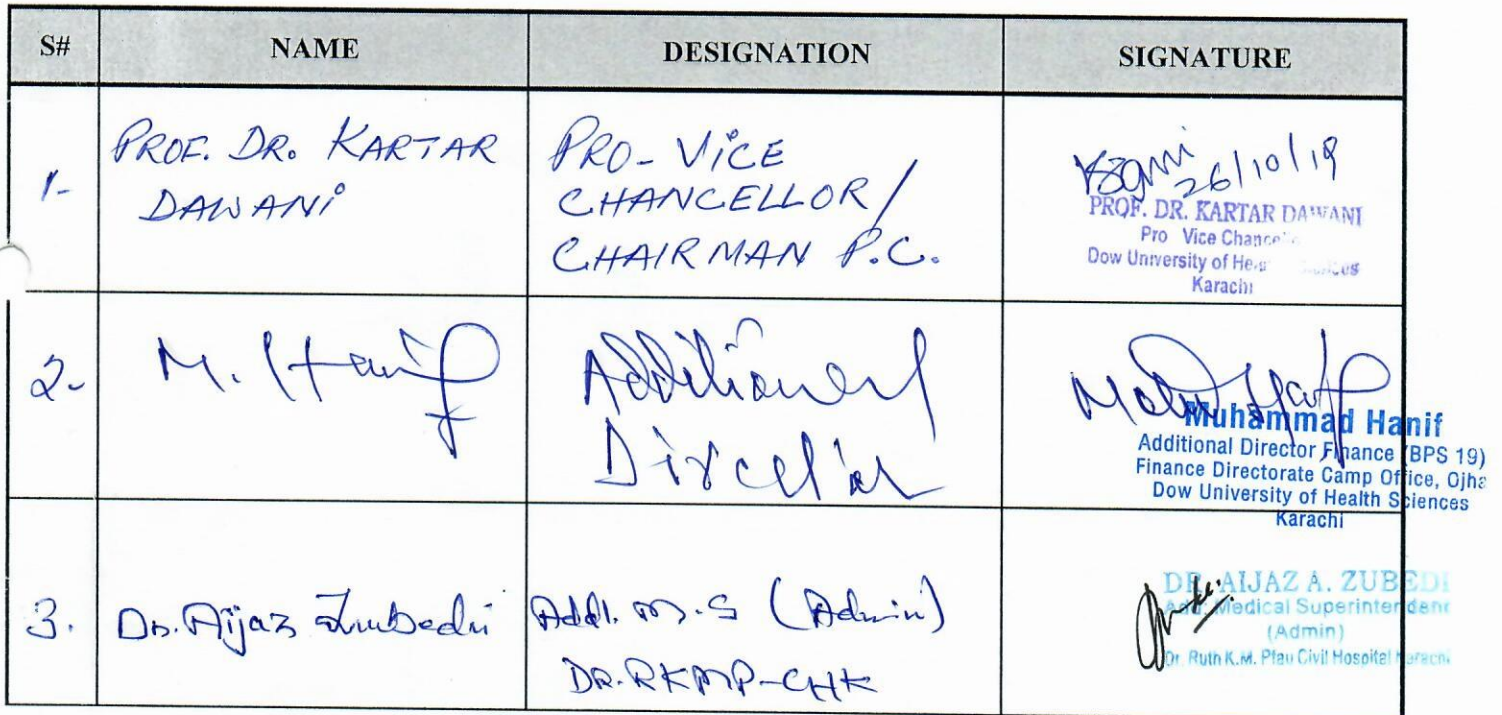 S# NAME DESIGNATION SIGNATURE
1- PROF. DR. KARTAR
DAWANI
PRO-VICE
CHANCELLOR/
CHAIRMAN P.C.
26/10/19
PROF. DR. KARTAR DAWANI
Pro Vice
Dow University of
Karachi
2- M. Hanif
Additional
Director
Muhammad Hanif
Additional Director Finance (BPS 19)
Finance Directorate Camp Office, Ojha
Dow University of Health Sciences
Karachi
3. Dr. Aijaz Zubedi
Addl. M.S (Admin)
DR.RKMP-CHK
DR. AIJAZ A. ZUBEDI
Add: Medical Superintendent
(Admin)
Dr. Ruth K.M. Pfau Civil Hospital Karachi